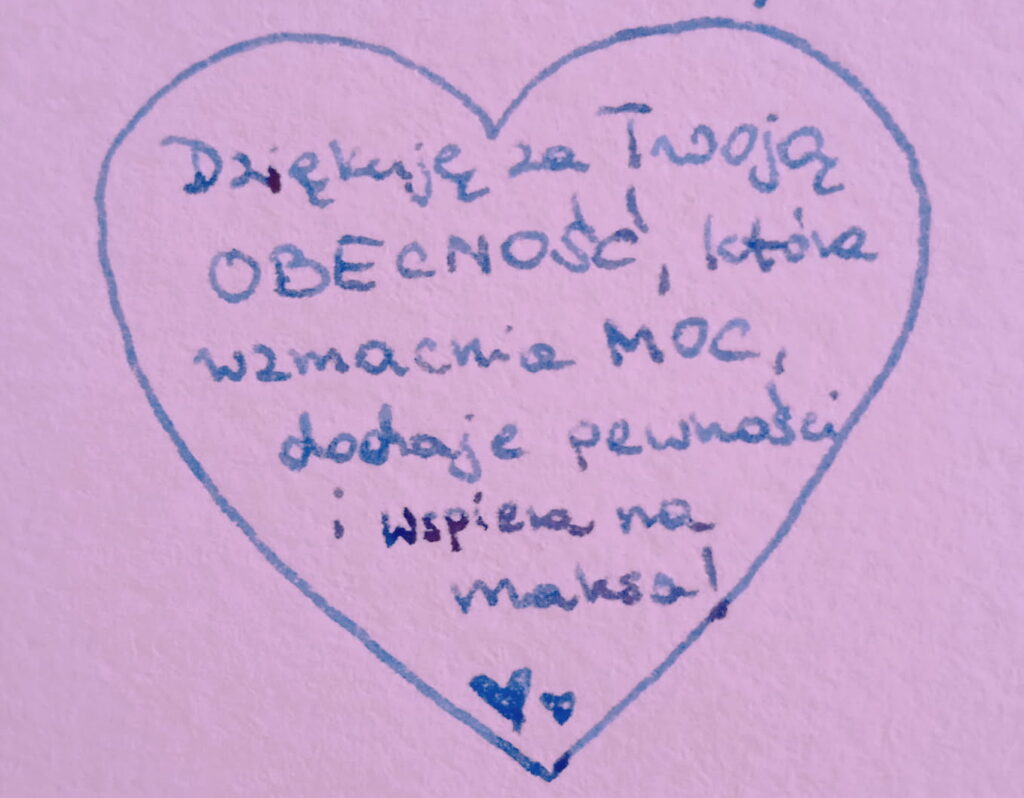 Dziękuję za Twoją
OBECNOŚĆ, która
wzmacnia MOC,
dodaje pewności
i wspiera na
maksa!